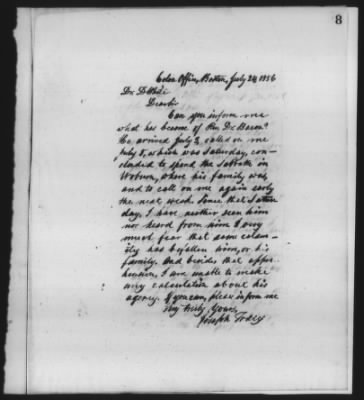 8
Colon. Office, Boston, July 24, 1856
Dr.
Dear Sir
Can you inform me
what has become of Rev. Dr. Bacon?
He arrived July 3, called on me
July 5, which was Saturday, con-
cluded to spend the Sabbath in
Woburn, where his family was,
and to call on me again early
the next week. Since that Satur
day, I have neither seen him
nor heard from him & very
much fear that some calam-
ity has befallen him, or his
family. And besides that appre-
hension, I am unable to make
any calculation about his
agency. If you can, please inform me
Very truly Yours,
Joseph Tracy